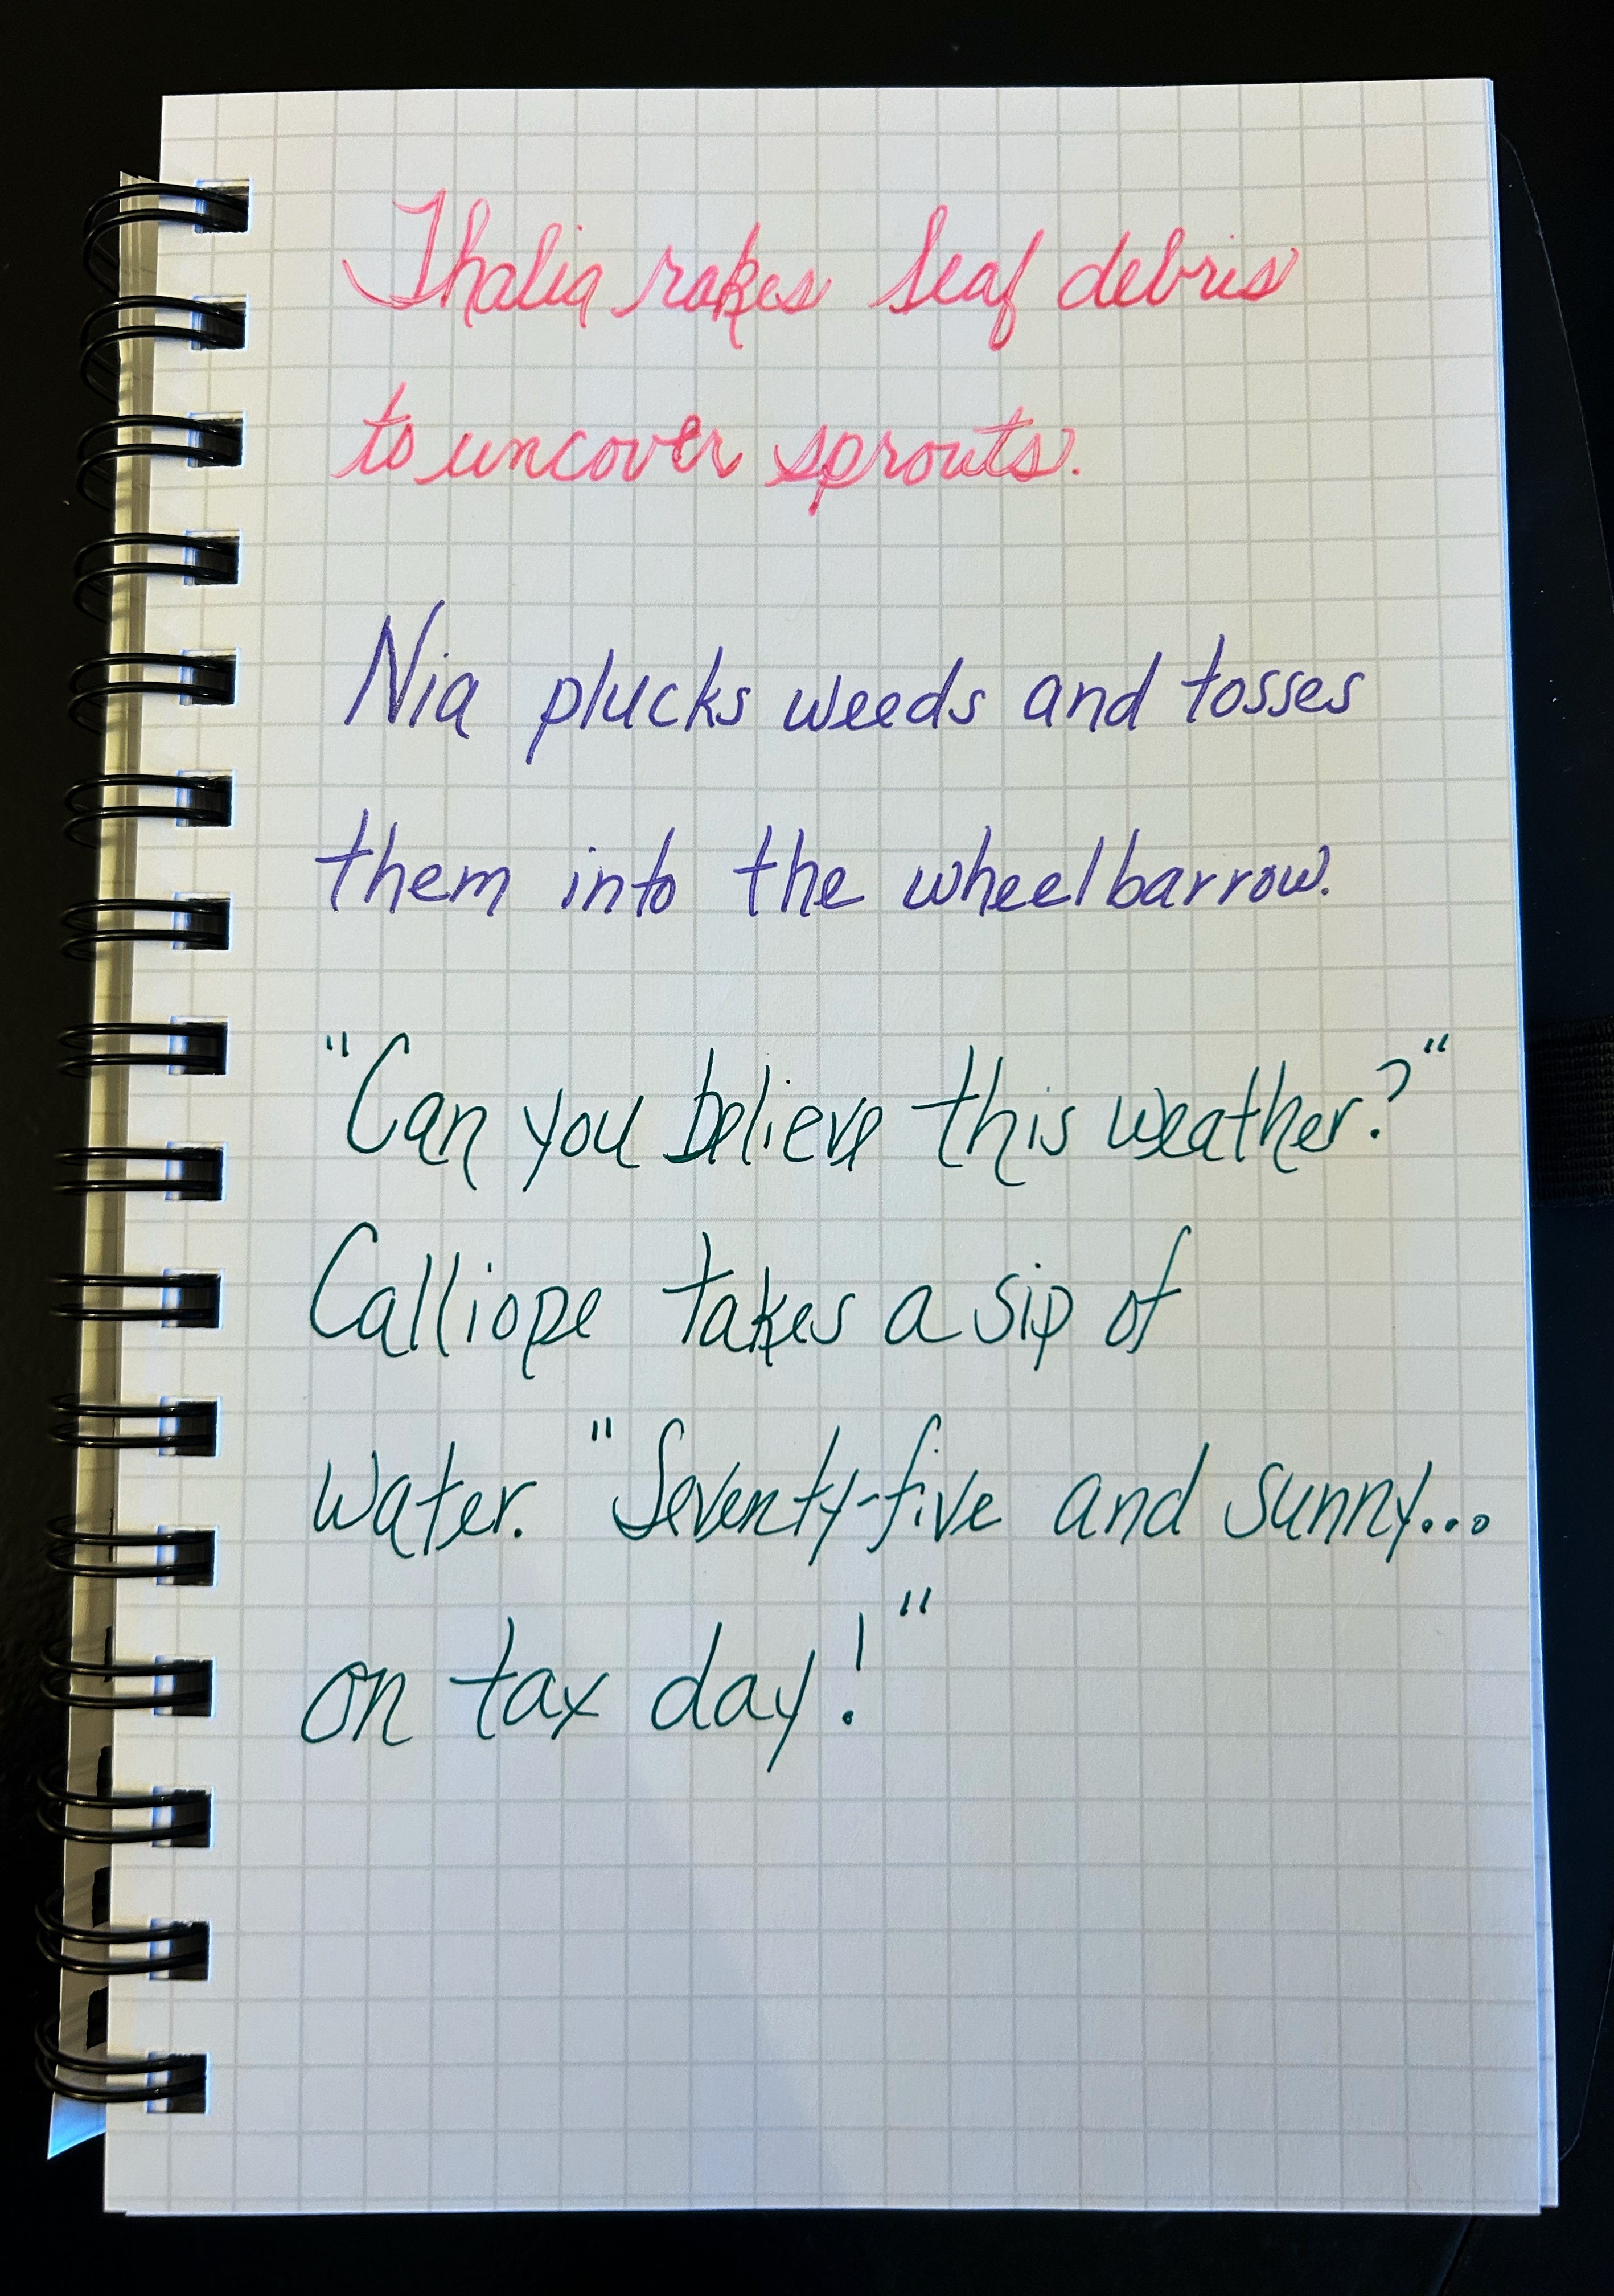 Thalia rakes leaf debris
to uncover sprouts.
Nia plucks weeds and tosses
them into the wheelbarrow.
"Can you believe this weather?"
Calliope takes a sip of
water. "Seventy-five and sunny...
on tax day!"